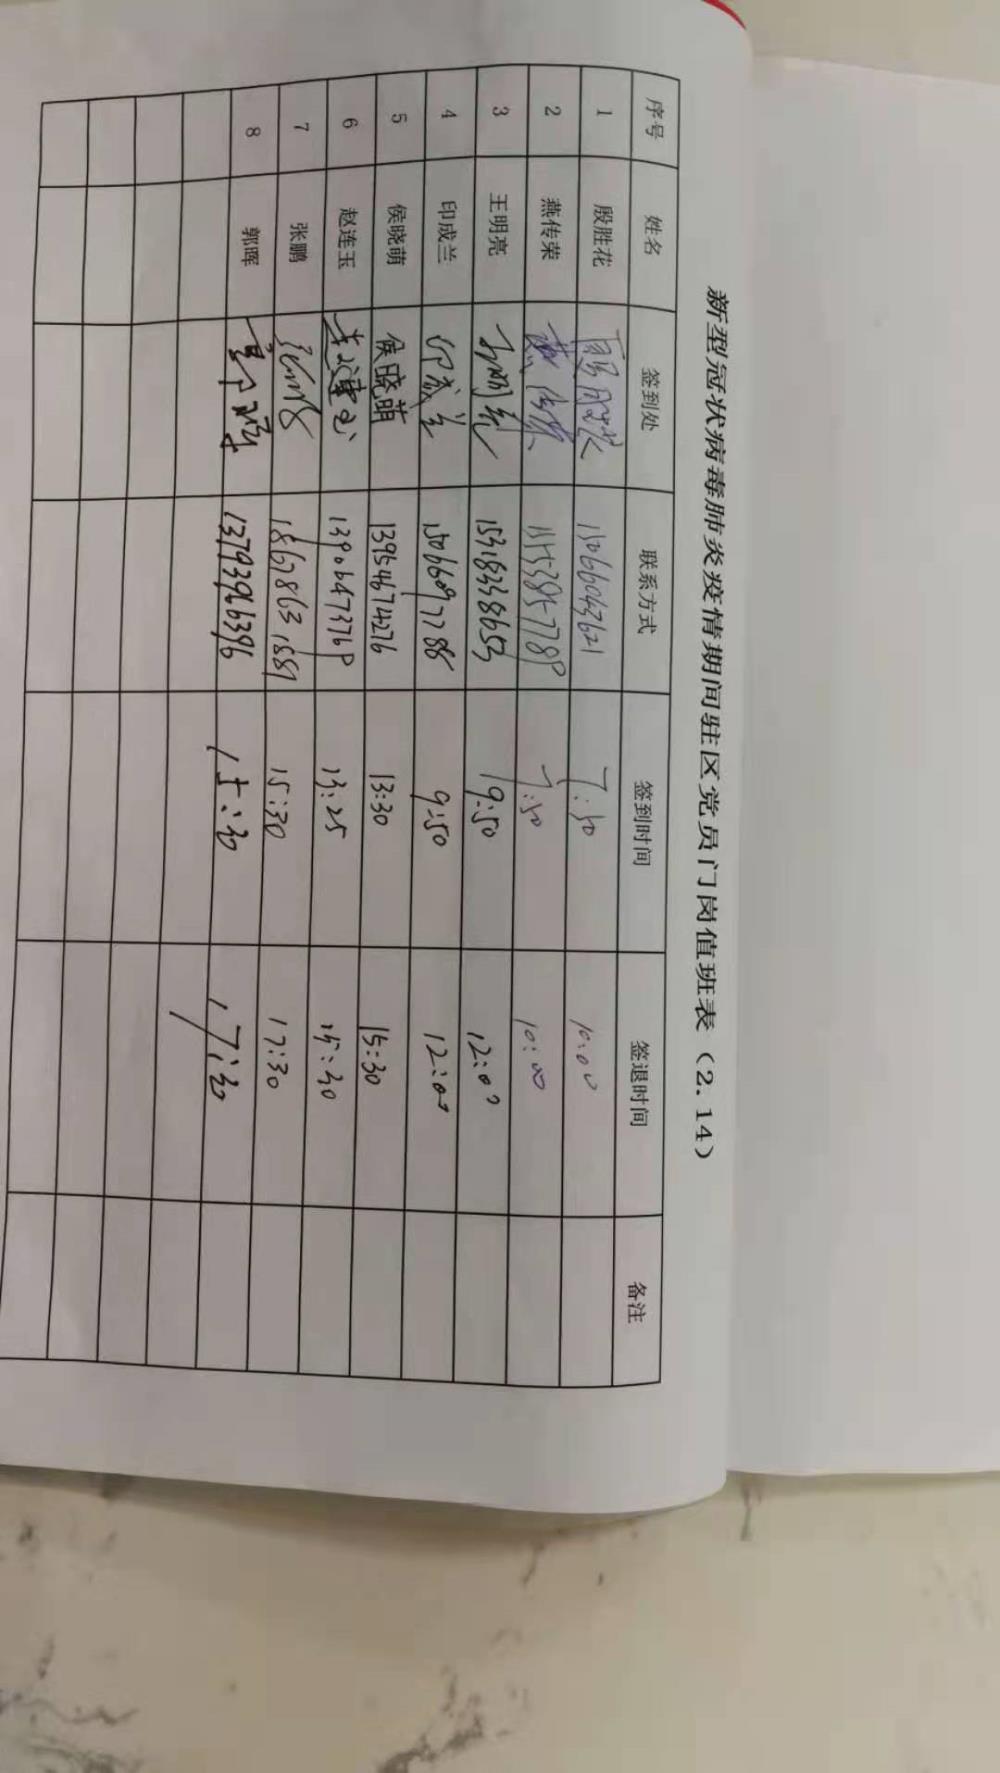 新型冠状病毒肺炎疫情期间驻区党员门岗值班表（2.14）
序号 姓名 签到处 联系方式 签到时间 签退时间 备注
1 殷胜花 殷胜花 15066043621 7:50 10:00
2 燕传荣 燕传荣 7:50 10:00
3 王明亮 王明亮 15318338653 9:50 12:00
4 印成兰 印成兰 15066097788 9:50 12:00
5 侯晓萌 侯晓萌 13954674276 13:30 15:30
6 赵连玉 赵连玉 13:25 15:30
7 张鹏 张鹏 15:30 17:30
8 郭晖 郭晖 13793966396 15:30 17:30